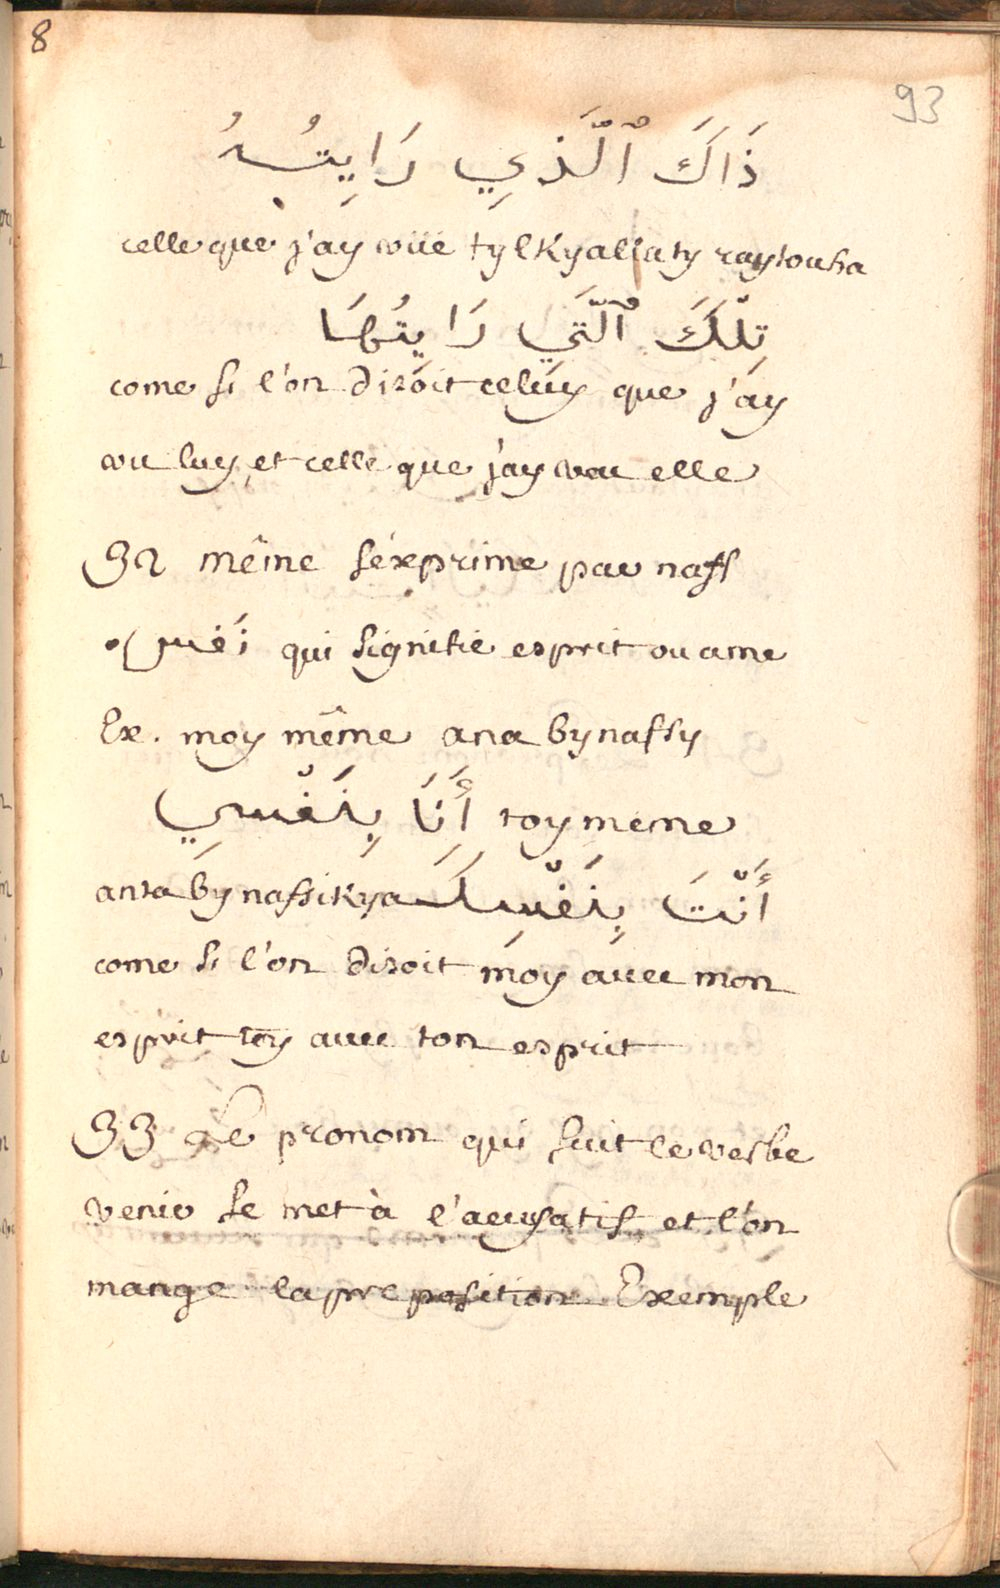 8
93
ذَاكَ ٱلَّذِي رَايِتُهُ
celle que j'ay vüe tylkyallaty raytouha
تِلْكَ ٱلَّتِي رَايِتُهَا
come si l'on disoit celuy que j'ay
vu luy, et celle que j'ay vue elle
32 même s'éxprime par nafs
نَفْس qui signifie esprit ou ame
Ex. moy même ana bynafsy
أَنَا بِنَفْسِي toy meme
anta bynafsikya أَنْتَ بِنَفْسِكَ
come si l'on disoit moy avec mon
esprit toy avec ton esprit
33 Le pronom qui suit le verbe
venir se met à l'acusatif, et l'on
mange la preposition Exemple